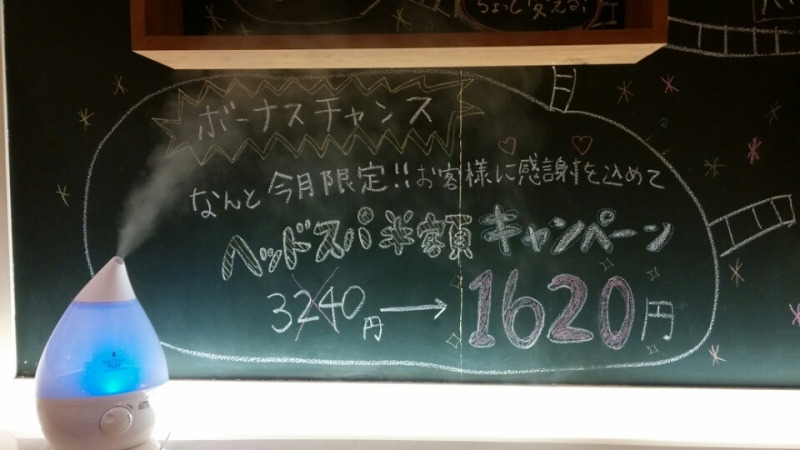 ちょっと変える!
ボーナスチャンス
なんと今月限定!!お客様に感謝を込めて
ヘッドスパ半額キャンペーン
3240円→1620円